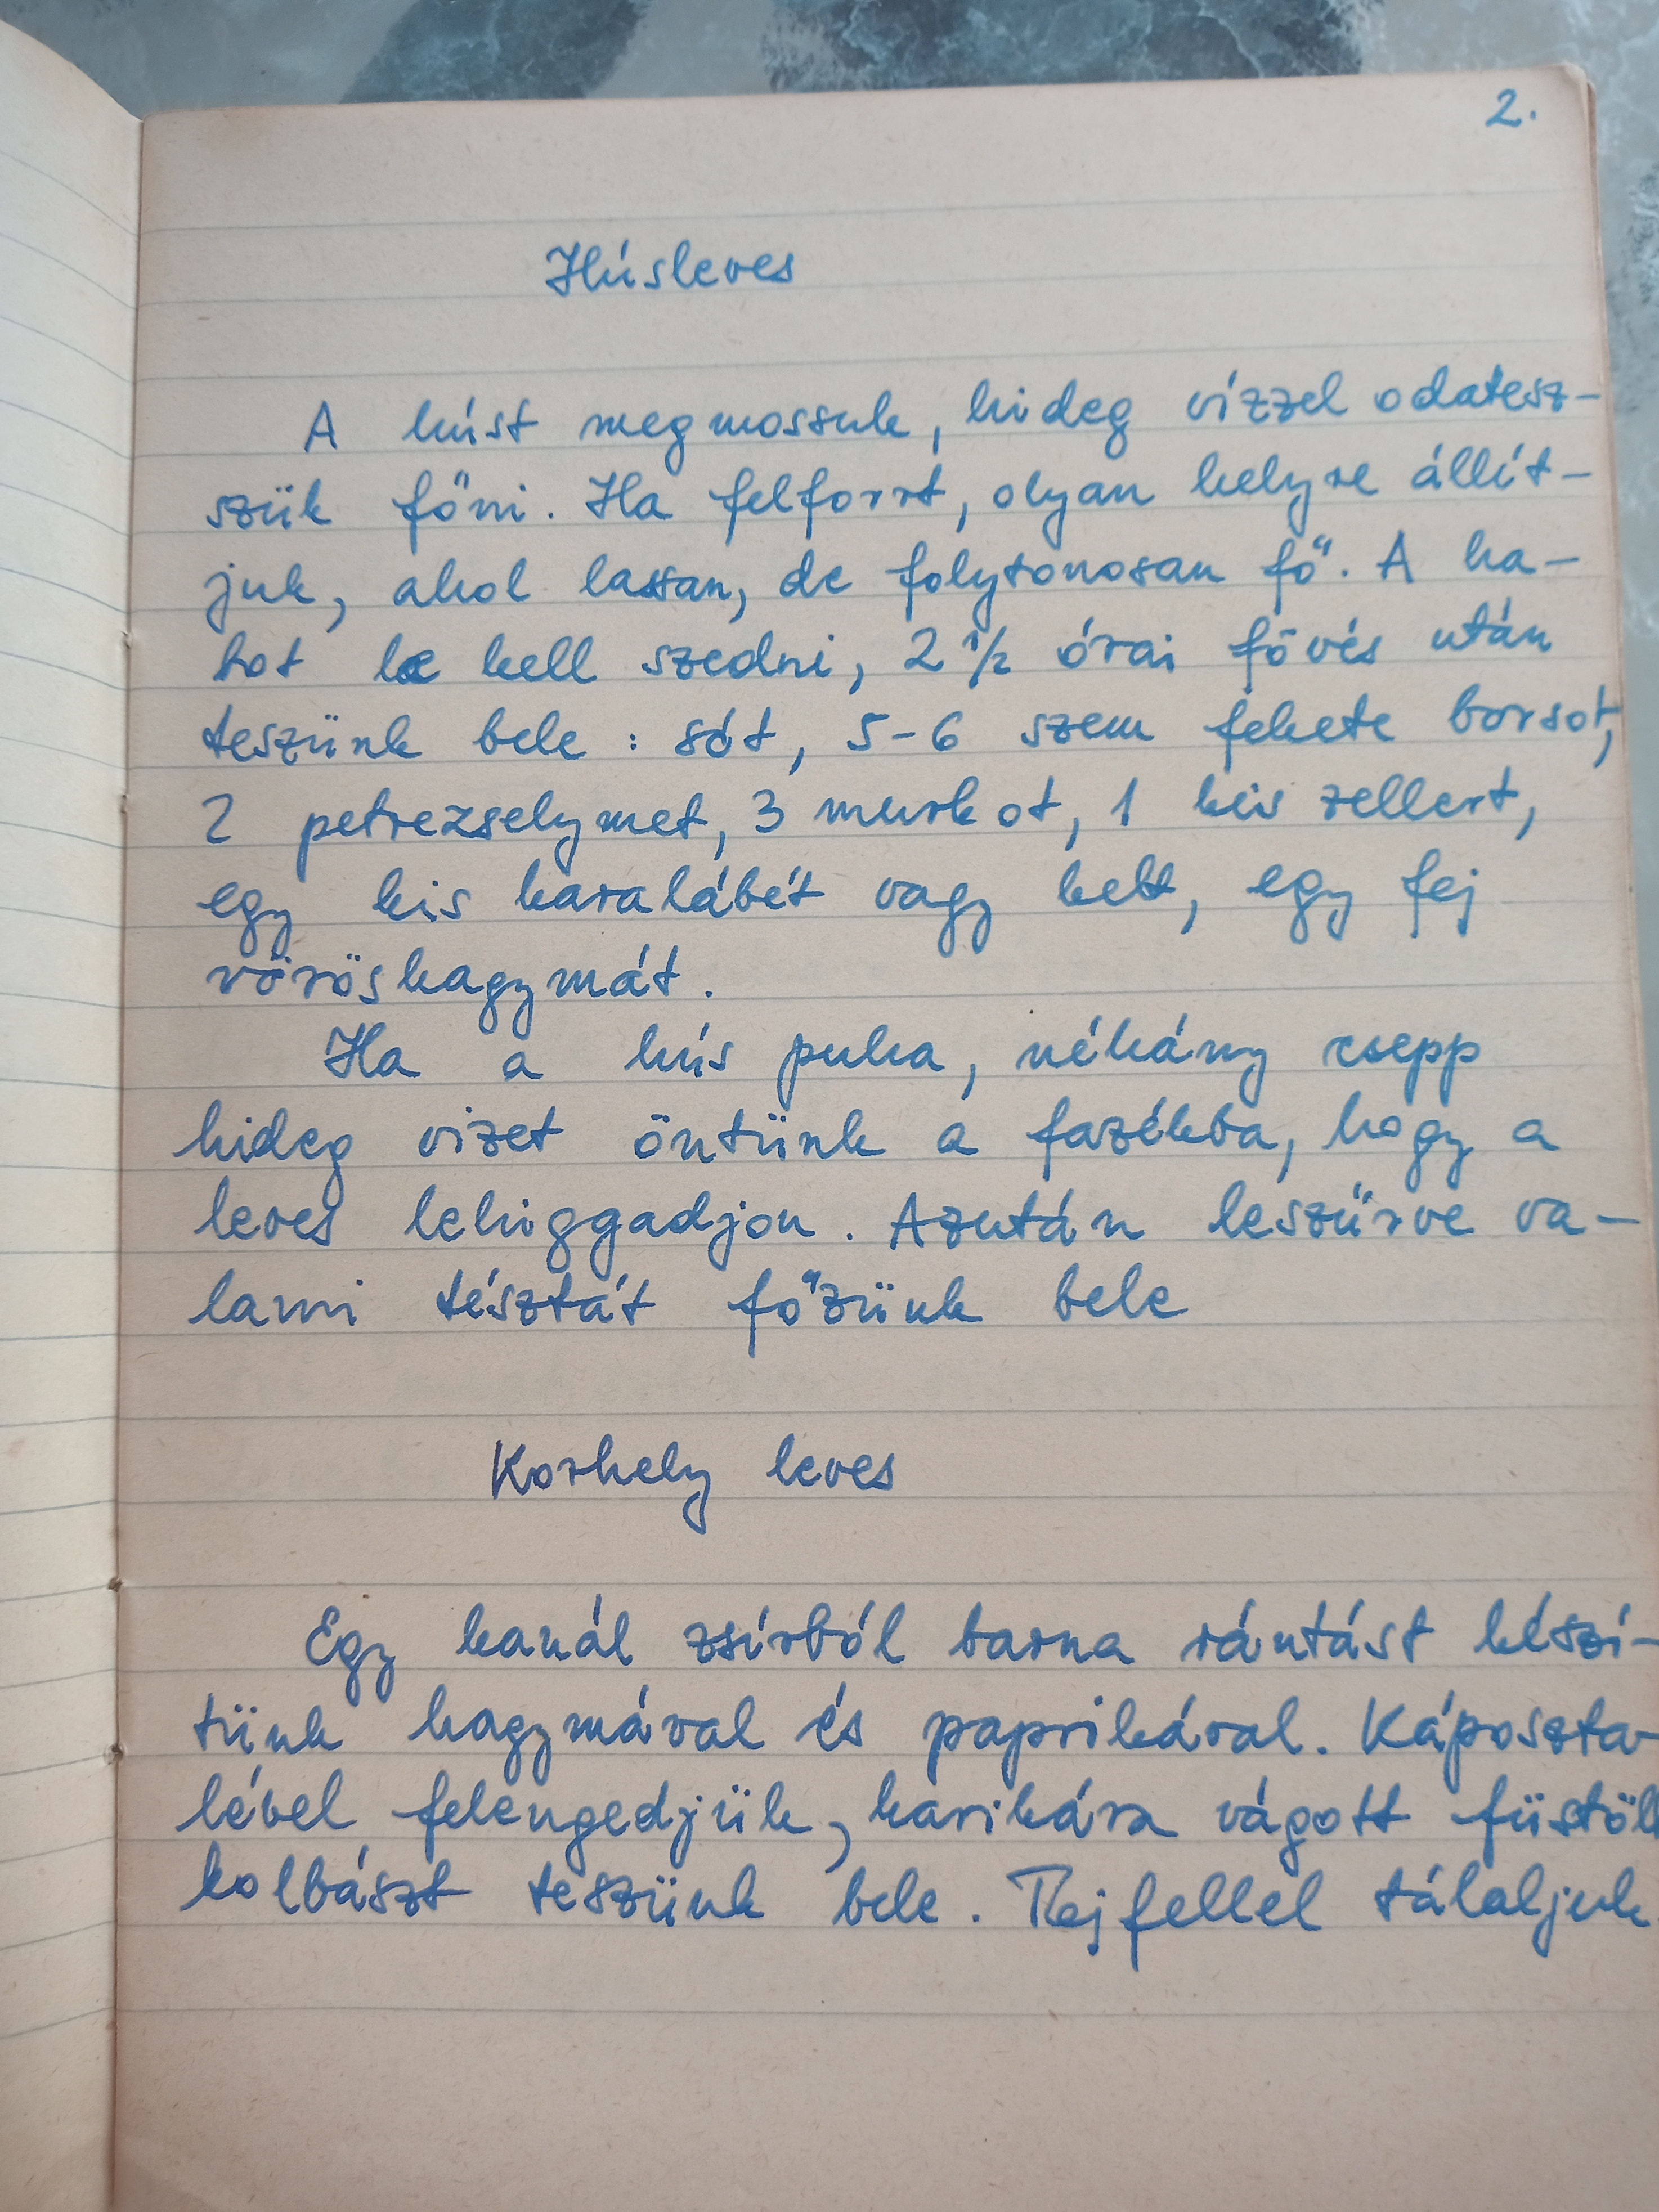 2.
Húsleves
A húst megmossuk, hideg vízzel odatesz-
szük főni. Ha felforrt, olyan helyre állít-
juk, ahol lassan, de folytonosan fő. A ha-
bot le kell szedni, 2 1/2 órai fövés után
teszünk bele : sót, 5-6 szem fekete borsot,
2 petrezselymet, 3 murkot, 1 kis zellert,
egy kis karalábét vagy kelt, egy fej
vöröshagymát.
Ha a hús puha, néhány csepp
hideg vizet öntünk a fazékba, hogy a
leves lehiggadjon. Azután leszűrve va-
lami tésztát főzünk bele
Korhely leves
Egy kanál zsírból barna rántást készí-
tünk hagymával és paprikával. Káposzta-
lével felengedjük, karikára vágott füstölt
kolbászt teszünk bele. Tejfellel tálaljuk